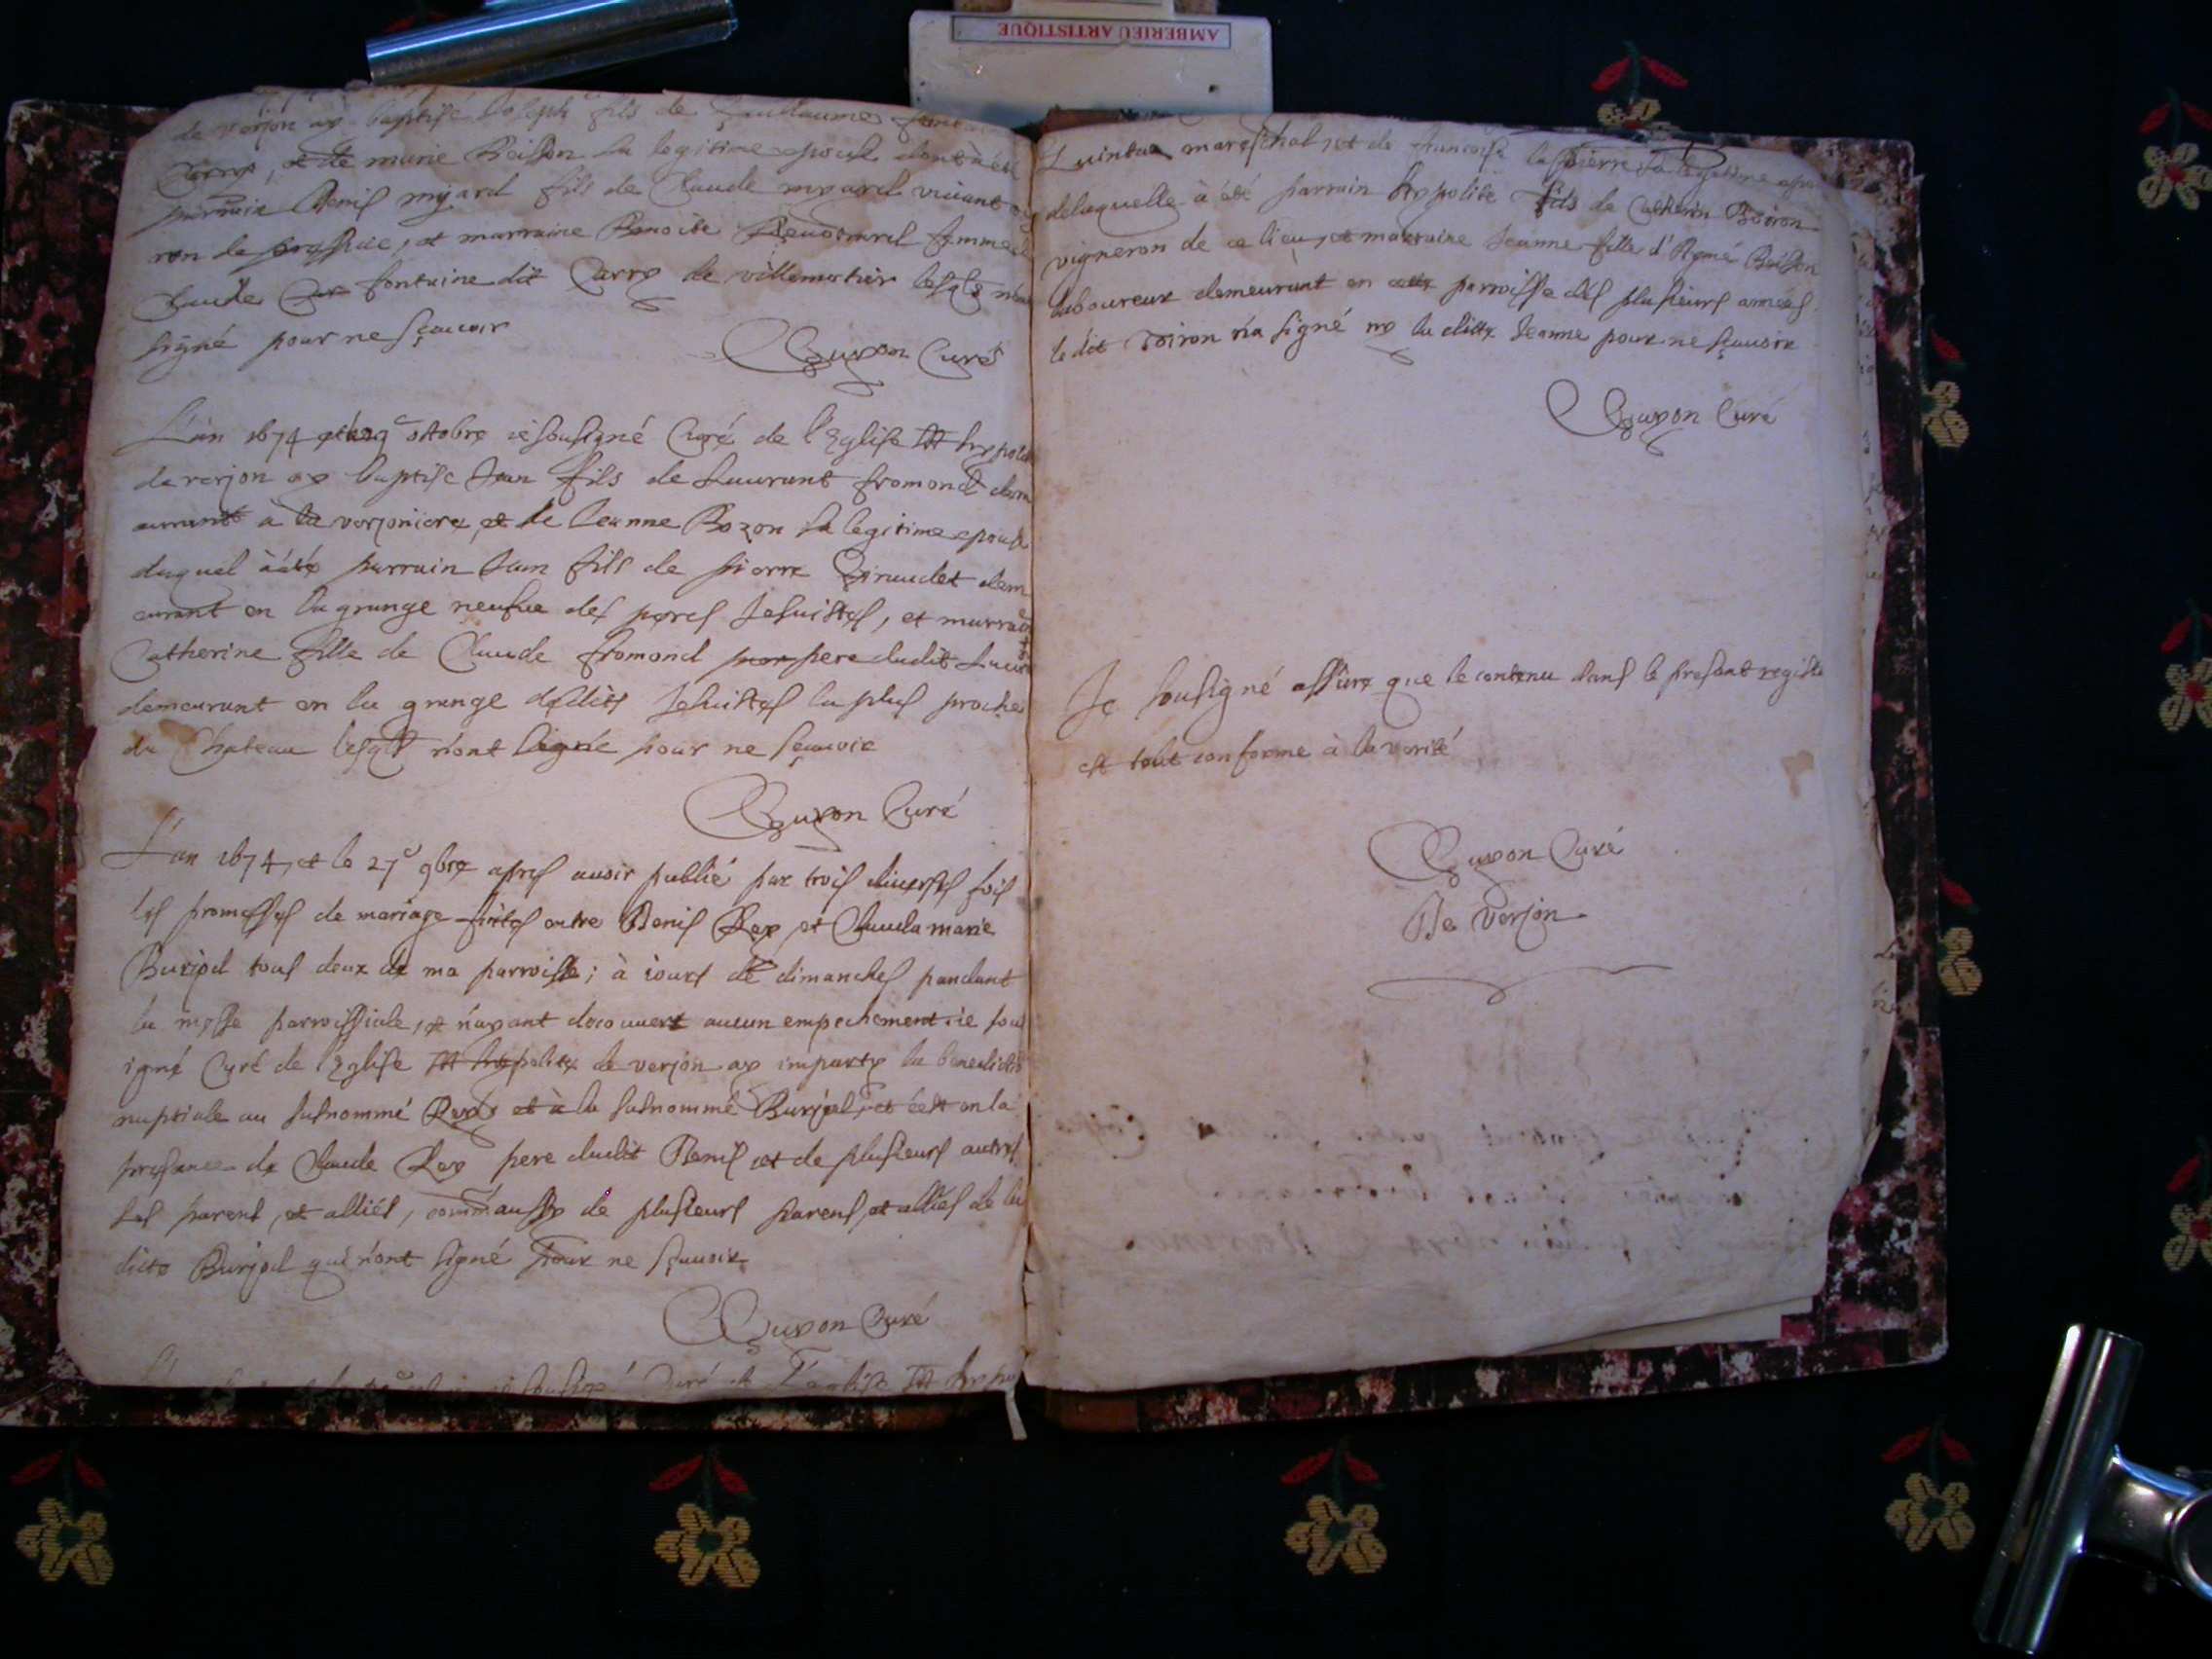 AMBERIEU ARTISTIQUE
de verjon ay baptisé Joseph fils de Guillaume
Carry, et de marie Boisson sa legitime epouse dont à été
parrain Denis myard fils de Claude myard vivant
ron de profession, et marraine Benoite femme de
Claude Car fontaine dit Carry de villemotier lesqls n'ont
signé pour ne sçavoir
Guyon Curé
L'an 1674 et le 29e octobre ie sousigné Curé de l'Eglise St hypolite
de verjon ay baptisé Jean fils de Laurant fromond dem
eurant à la verjoniere, et de Jeanne Bozon sa legitime epouse
duquel à été parrain Jean fils de pierre Giraudet dem
eurant en la grange neufue des peres Jesuistes, et marraine
Catherine fille de Claude fromond pere dudit Laurant
demeurant en la grange desdits Jesuistes la plus proche
du Chateau lesqls n'ont signé pour ne sçavoir
Guyon Curé
L'an 1674, et le 27e 9bre apres auoir publié par trois diuerses fois
les promesses de mariage faites entre Denis Rey et Clauda marie
Burjod tous deux de ma parroisse; à iours de dimanches pandant
la messe parroissiale, et n'ayant decouuert aucun empechement ie sous
igné Curé de l'Eglise St hypolite de verjon ay imparty la benediction
nuptiale au susnommé Rey et à la susnommé Burjod, et ce en la
presance de Claude Rey pere dudit Denis et de plusieurs autres
ses parens, et alliés, comm'aussy de plusieurs parens, et alliés de la
ditte Burjod qui n'ont signé pour ne sçauoir
Guyon Curé
sousigné Curé de l'Eglise St hypo
Quintua mareschal, et de francoise la pierre sa legitime epouse
delaquelle à été parrain hypolite fils de Catherin Boiron
vigneron de ce lieu, et marraine Jeanne fille d'Aymé Boisson
laboureur demeurant en cette parroisse dés plusieurs années
le dit Boiron n'a signé ny la ditte Jeanne pour ne sçauoir
Guyon Curé
Je sousigné assure que le contenu dans le presant registre
est tout conforme à la verité
Guyon Curé
De Verjon